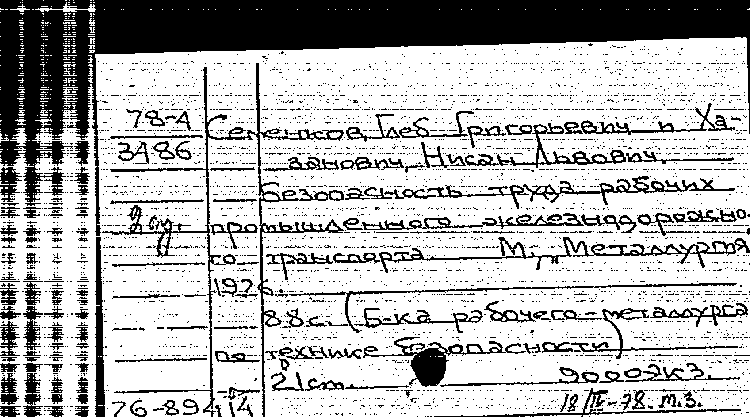 78-4
3486
Семенков, Глеб Григорьевич и Ха-
занович, Нисан Львович.
Безопасность труда рабочих
2 од.
промышленного железнодорожно-
го транспорта. М., "Металлургия",
1976.
88с. (Б-ка рабочего-металлурга
по технике безопасности)
21cm. 9000экз.
76-894 18/III-78. М.З.